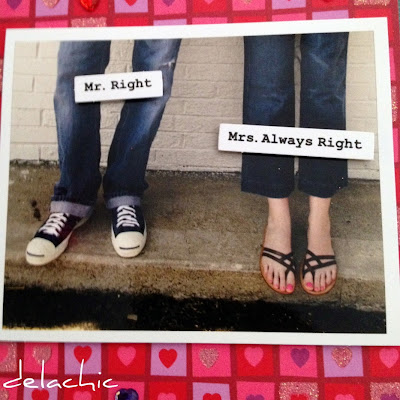 Mr. Right
Mrs. Always Right
delachic